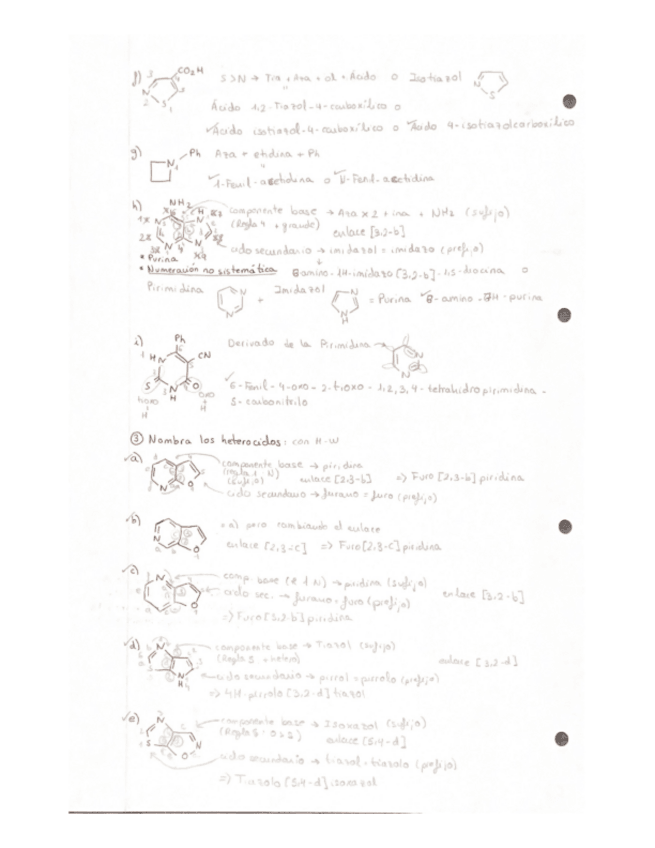 f) CO2H S>N → Tia + Aza + ol + Ácido o Isotiazol
Ácido 1,2-Tiazol-4-carboxílico o
✓Ácido isotiazol-4-carboxílico o ✓Ácido 4-isotiazolcarboxílico
g) Ph Aza + etidina + Ph
✓1-Fenil-azetidina o N-Fenil-azetidina
h) NH2 componente base → Aza x 2 + ina + NH2 (sufijo)
(Regla 4 + grande) enlace [3,2-b]
ciclo secundario → imidazol = imidazo (prefijo)
* Purina
* Numeración no sistemática
Pirimidina + Imidazol = Purina ✓6-amino-
i) Ph Derivado de la Pirimidina →
CN
✓6-Fenil-4-oxo-2-tioxo-1,2,3,4-tetrahidropirimidina-
5-carbonitrilo
③ Nombra los heterociclos: con H-W
✓a) componente base → piridina
(Regla 1, N)
(sufijo) enlace [2,3-b] => Furo[2,3-b]piridina
ciclo secundario → furano = furo (prefijo)
✓b) = a) pero cambiando el enlace
enlace [2,3-c] => Furo[2,3-c]piridina
✓c) comp. base (R 1 N) → piridina (sufijo)
ciclo sec. → furano = furo (prefijo) enlace [3,2-b]
=> Furo[3,2-b]piridina
✓d) componente base → Tiazol (sufijo)
(Regla 5 + hetero) enlace [3,2-d]
ciclo secundario → pirrol = pirrolo (prefijo)
=> 4H-pirrolo[3,2-d]tiazol
✓e) componente base → Isoxazol (sufijo)
(Regla 5: O>S) enlace [5,4-d]
ciclo secundario → tiazol = tiazolo (prefijo)
=> Tiazolo[5,4-d]isoxazol